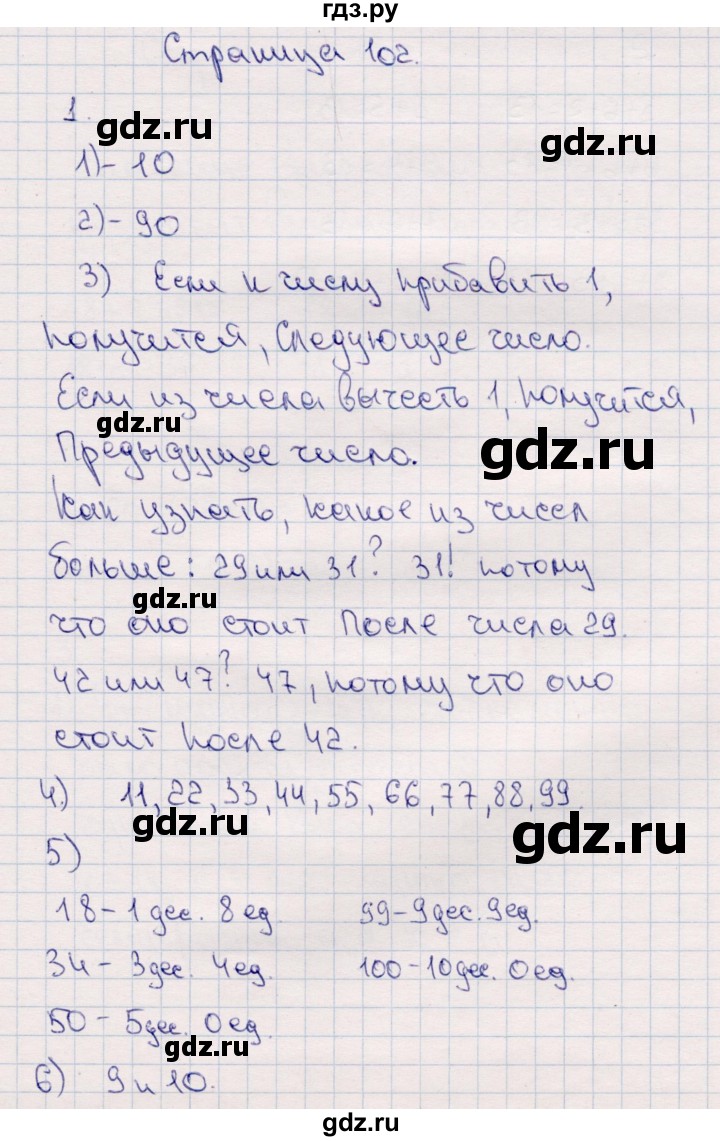 гдз.ру
Страница 102.
1.
gdz.ru
gdz.ru
1)- 10
2)- 90
3) Если к числу прибавить 1,
получится, следующее число.
Если из числа вычесть 1, получится,
gdz.ru
gdz.ru
Предыдущее число.
Как узнать, какое из чисел
больше: 29 или 31? 31! потому
gdz.ru
что оно стоит После числа 29.
42 или 47? 47, потому что оно
стоит после 42.
4.) 11, 22, 33, 44, 55, 66, 77, 88, 99.
gdz.ru
gdz.ru
5)
18 - 1 дес. 8 ед. 99 - 9 дес. 9 ед.
34 - 3 дес. 4 ед. 100 - 10 дес. 0 ед.
50 - 5 дес. 0 ед.
gdz.ru
6) 9 и 10.
gdz.ru